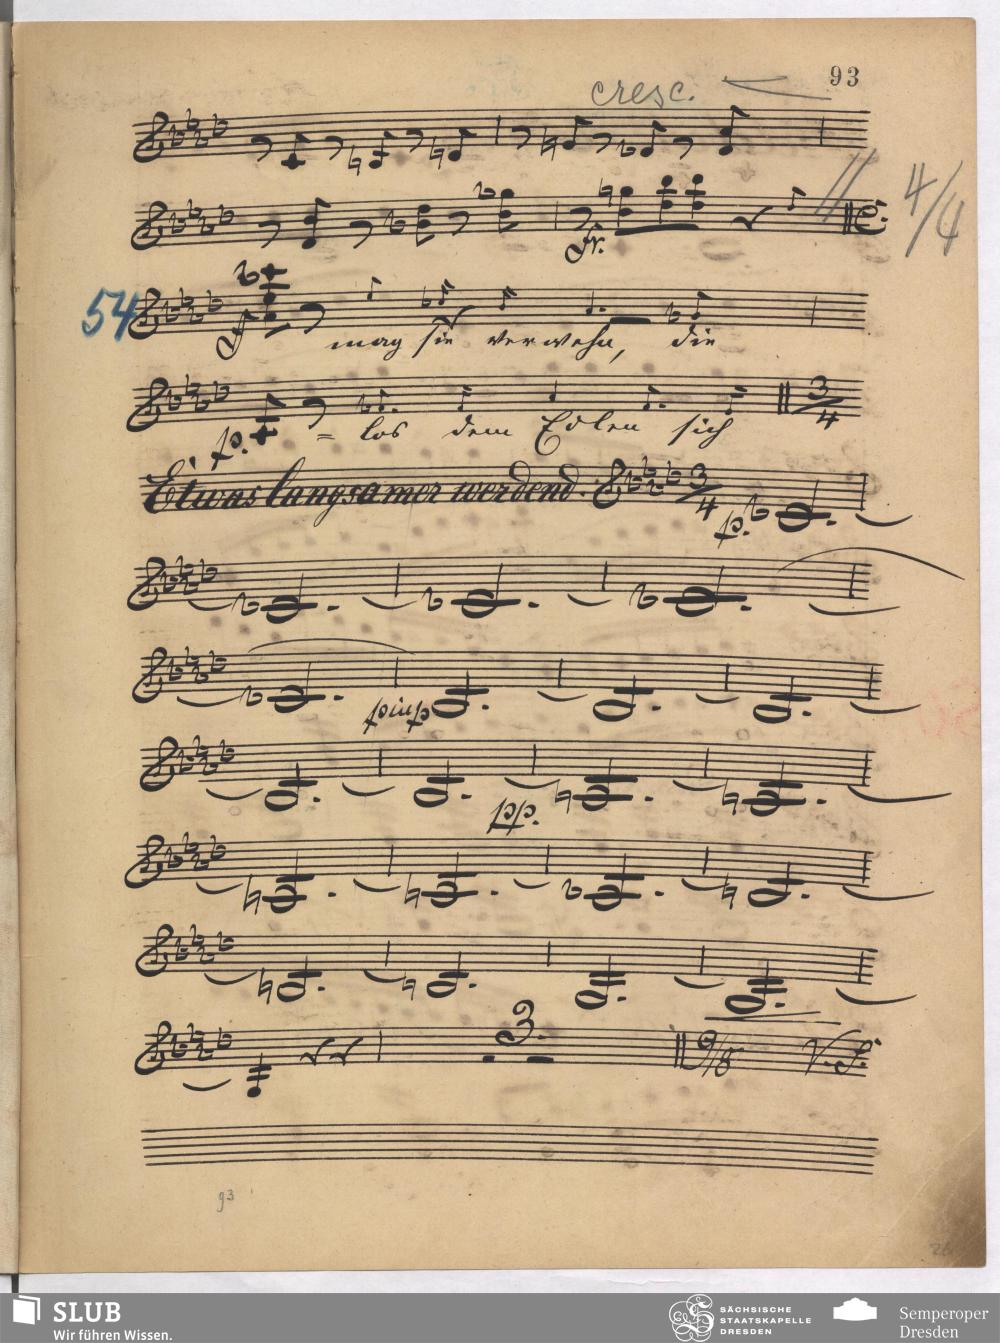 93
cresc.
fr.
4/4
54
f
mag sie verwehn, die
p. = los dem Edlen sich 3/4
Etwas langsamer werdend. 3/4 p.
piup
pp.
3. 9/8 V. S.
93
26
SLUB
Wir führen Wissen.
SÄCHSISCHE
STAATSKAPELLE
DRESDEN
Semperoper
Dresden